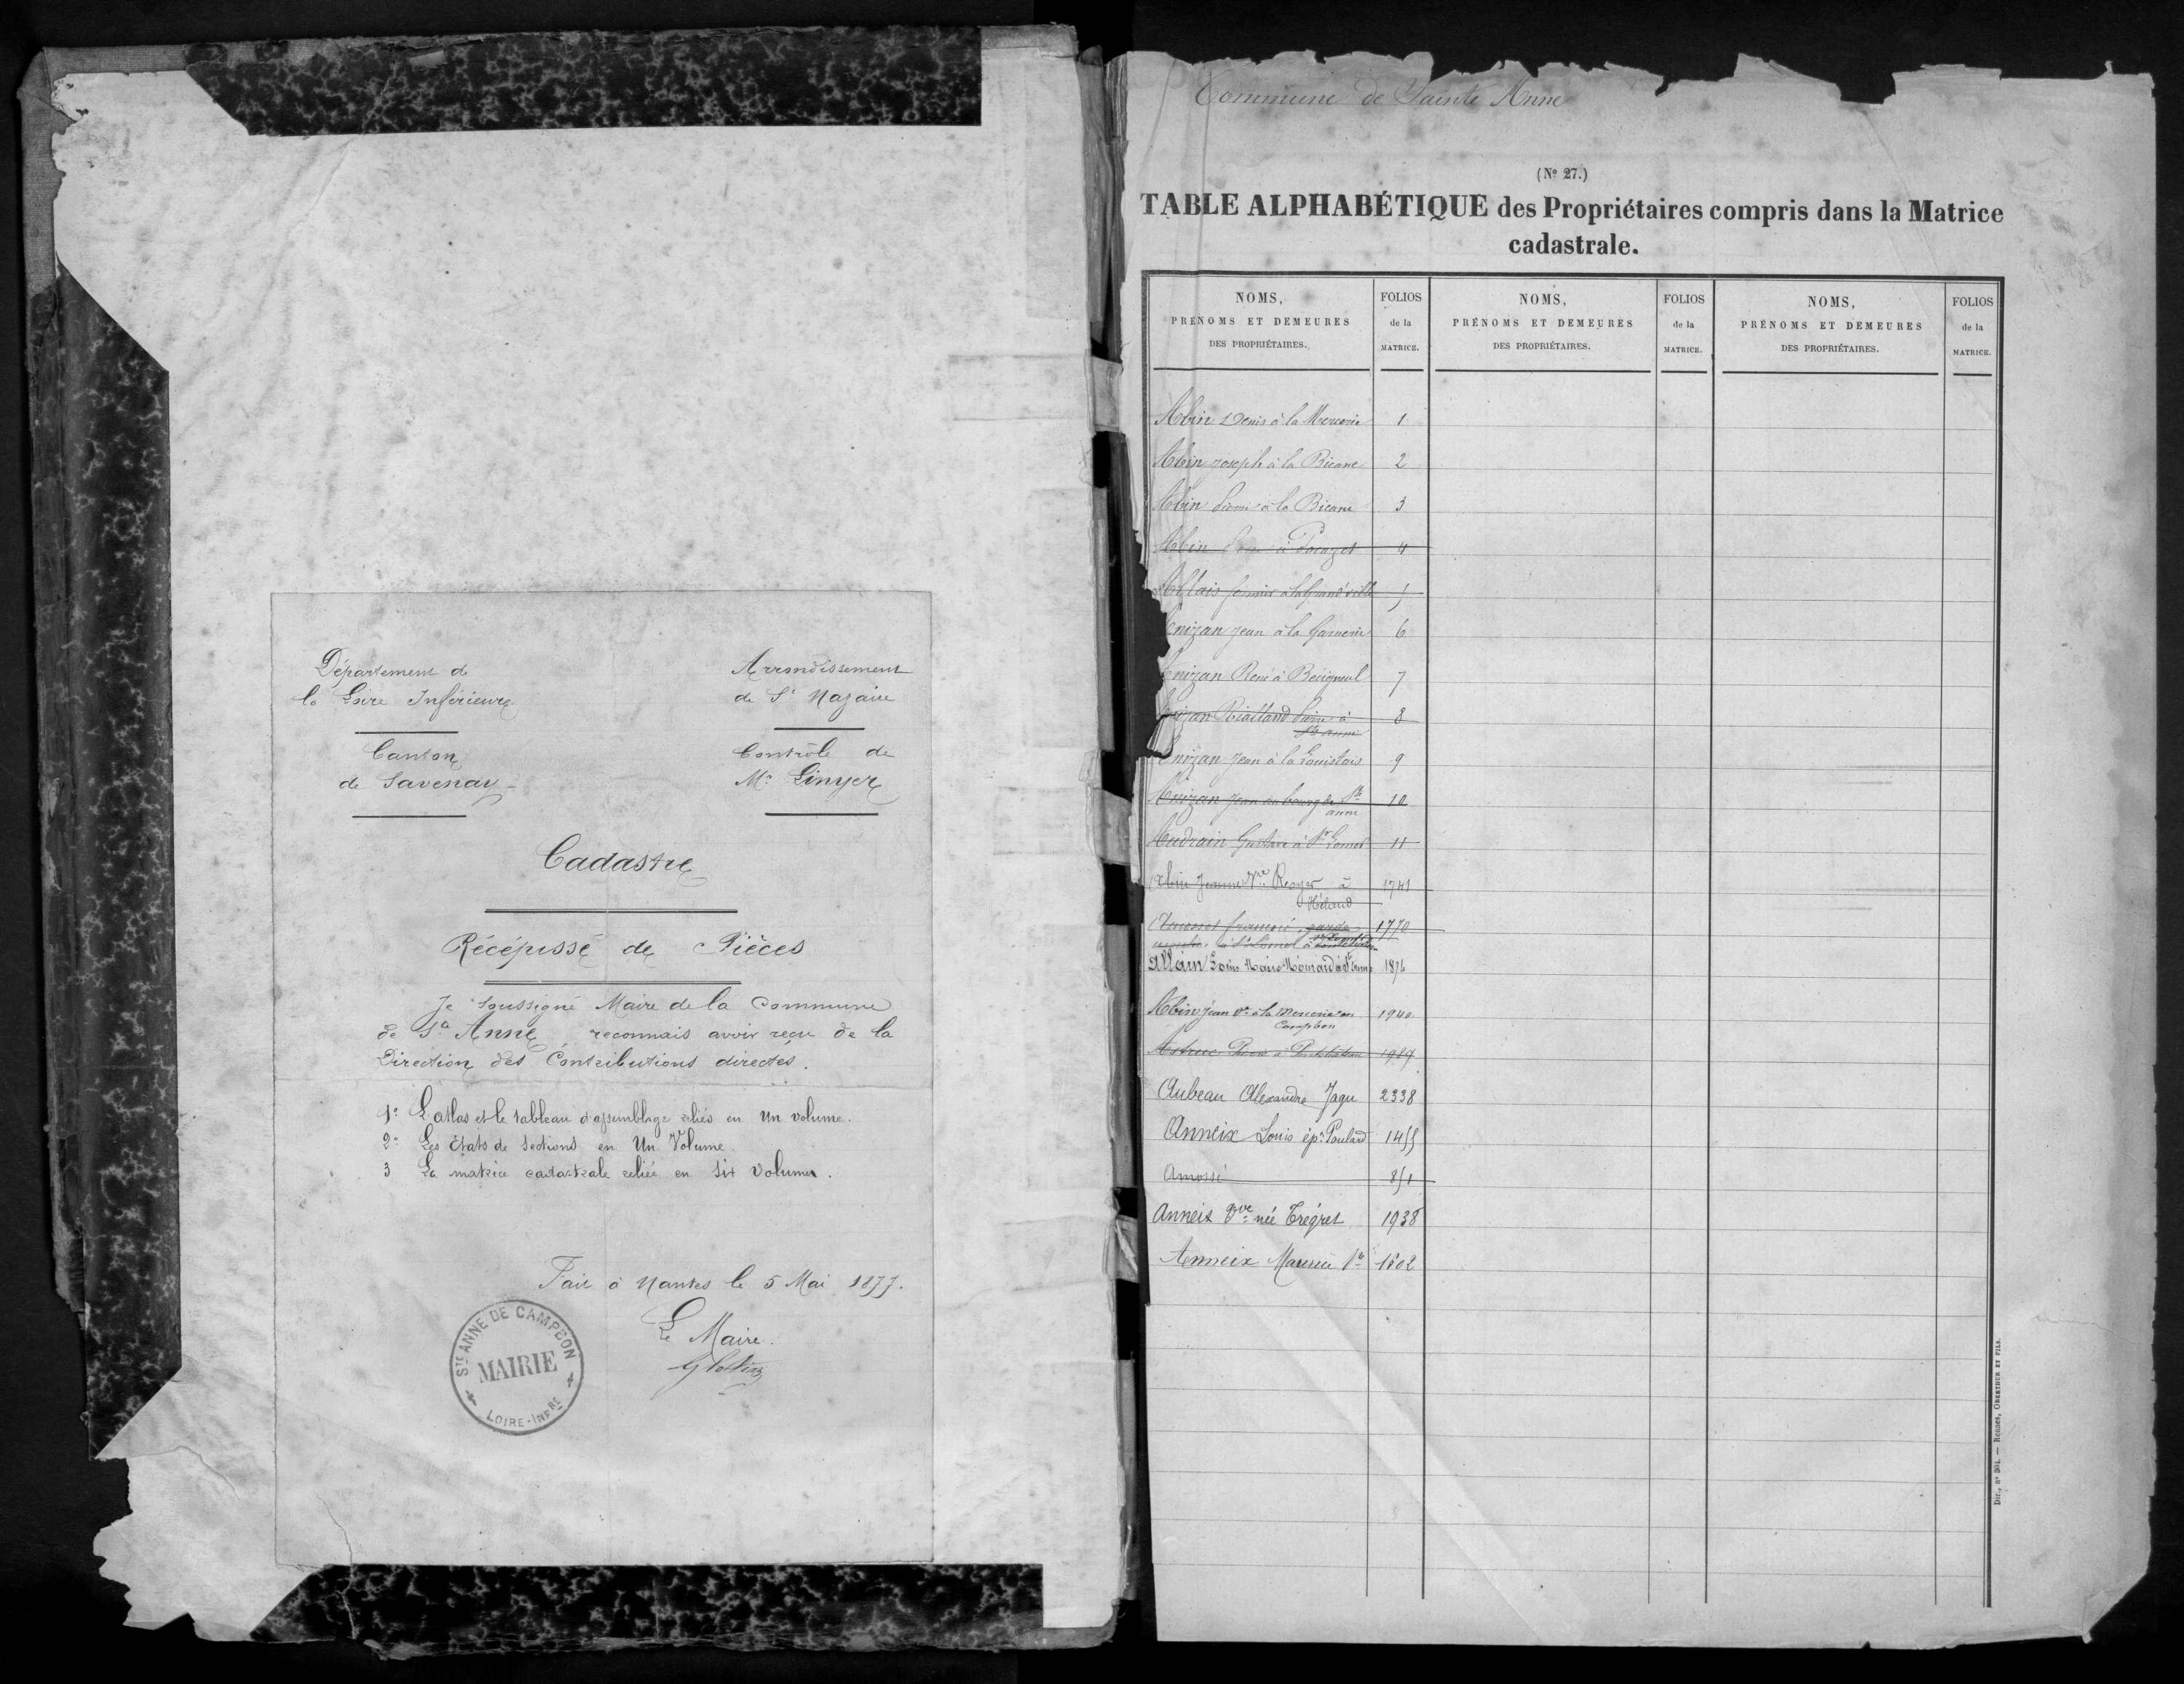 Département de
la Loire Inférieure
Arrondissement
de St Nazaire
Canton
de Savenay
Contrôle de
Mr Linyer
Cadastre
Récépissé de Pièces
Je soussigné Maire de la Commune
de Ste Anne, reconnais avoir reçu de la
Direction des Contributions directes.
1° L'atlas et le tableau d'assemblage reliés en Un volume.
2° Les États de Sections en Un Volume.
3 La matrice cadastrale reliée en Six Volumes.
Fait à Nantes le 5 Mai 1877.
Le Maire.
STE ANNE DE CAMPBON
MAIRIE
LOIRE-INFRE
Commune de Sainte Anne
(No 27.)
TABLE ALPHABÉTIQUE des Propriétaires compris dans la Matrice
cadastrale.
NOMS, PRÉNOMS ET DEMEURES DES PROPRIÉTAIRES. FOLIOS de la MATRICE.
NOMS, PRÉNOMS ET DEMEURES DES PROPRIÉTAIRES. FOLIOS de la MATRICE.
NOMS, PRÉNOMS ET DEMEURES DES PROPRIÉTAIRES. FOLIOS de la MATRICE.
Abin Denis à la Mercerie 1
Abin Joseph à la Bicane 2
Abin Pierre à la Bicane 3
Abin à 4
Allais à la Grand'ville 5
enizan Jean à la Garnerie 6
enizan René à Bécigneul 7
Rialland Pierre à Ste anne 8
nizan Jean à la 9
Anizan Jean au bourg de Ste anne 10
Audrain Gustave à 11
Abin Jeanne Vve à 1741
garde 1770
Allain Louis à Ste Anne 1876
Abin Jean à la Mercerie en Campbon 1940
Astruc 1984
Aubeau Alexandre 2338
Anneix Louis ép. Poulard 1455
Amossé 851
Anneix Vve née Trégret 1938
Anneix Maurice 1602
Dir., No 304. — Rennes, OBERTHUR ET FILS.